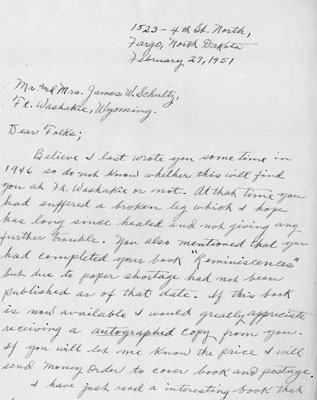 1523 - 4th St. North,
Fargo, North Dakota
February 27, 1951
Mr. and Mrs. James W. Schultz,
Ft. Washakie, Wyoming.
Dear Folks;
Believe I last wrote you some time in
1946 so do not know whether this will find
you at Ft. Washakie or not. At that time you
had suffered a broken leg which I hope
has long since healed and not giving any
further trouble. You also mentioned that you
had completed your book "Reminiscences"
but due to paper shortage had not been
published as of that date. If this book
is now available I would greatly appreciate
receiving a autographed copy from you.
If you will let me know the price I will
send money order to cover book and postage.
I have just read a interesting book that